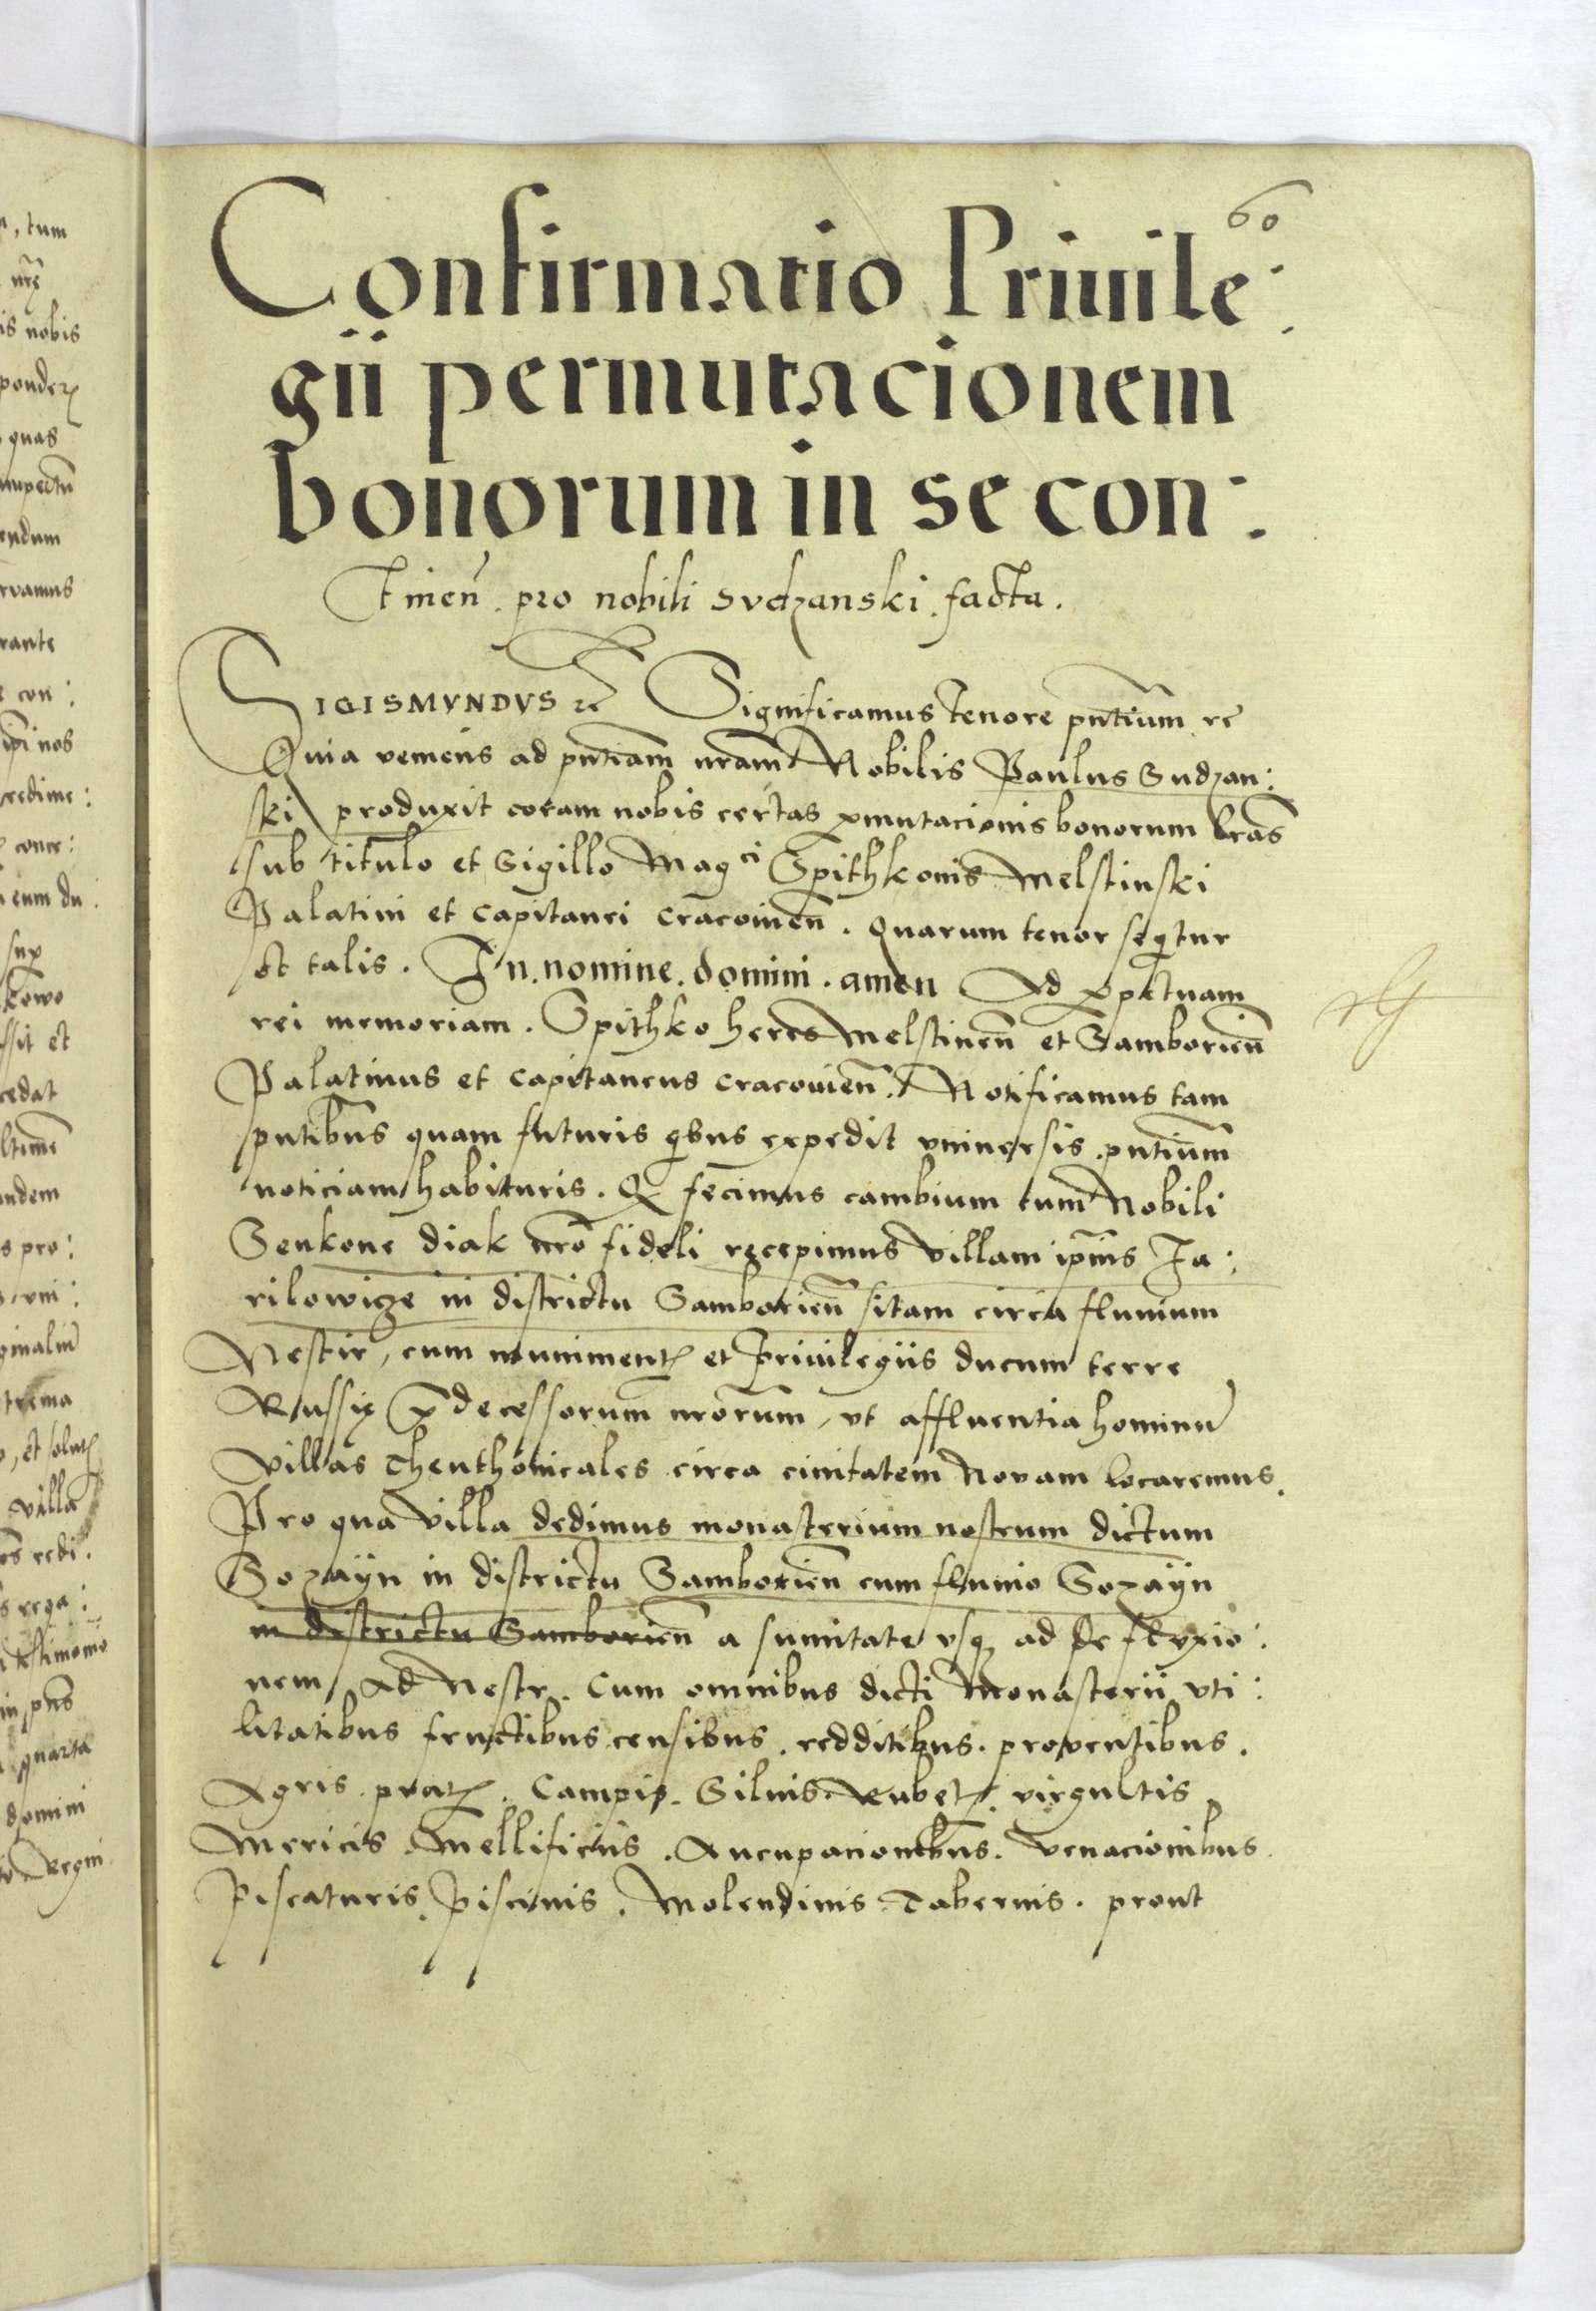 60
Confirmatio Priuile:
gii permutacionem
bonorum in se con:
tinen̄. pro nobili Sudzanski. facta.
SIGISMVNDVS etc Significamus tenore pn̄tium etc
Quia veniens ad pn̄tiam nr̄am Nobilis Paulus Sudzan:
ski produxit coram nobis certas ꝑmutacionis bonorum lr̄as
sub titulo et Sigillo Magci Spithkonis Melstinski
Palatini et Capitanei Cracouien̄. Quarum tenor seqitur
est talis. In. nomine. domini. amen Ad ꝑpetuam
rei memoriam. Spithko heres Melstinen̄ et Samborien̄
Palatinus et Capitaneus Cracouien̄. Notificamus tam
pn̄tibus quam futuris qibus expedit vniuersis pn̄tium
noticiam habituris. Qꝫ fecimus cambium cum Nobili
Senkone diak nr̄o fideli recepimus villam ip̄ius Ja:
rilowicze in districtu Samborien̄ sitam circa fluuium
Nestir, cum munimentꝭ et priuilegiis ducum terre
Russię p̄decessorum nr̄orum, vt affluentia hominū
villas Theuthonicales circa ciuitatem Nouam locaremus.
Pro qua villa dedimus monasterium nostrum dictum
Sozayn in districtu Samborien̄ cum fluuio Sozayn
in districtu Samborien̄ a sumitate vsqꝫ ad defluxio:
nem ad Nestr. Cum omnibus dicti Monasterii vti:
litatibus fructibus censibus. redditibus. prouentibus.
Agris. pratꝭ. Campis. Siluis. Rubetꝭ. virgultis
Mericis. Mellificiis. Aucupacionibus. venacionibus.
Piscaturis. Piscinis. Molendinis. Tabernis. prout